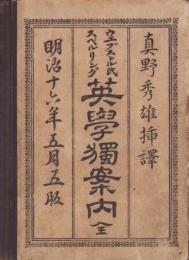 真野秀雄挿譯
ウエブストル氏
スペルリング
英學獨案内 全
明治十六年五月五版